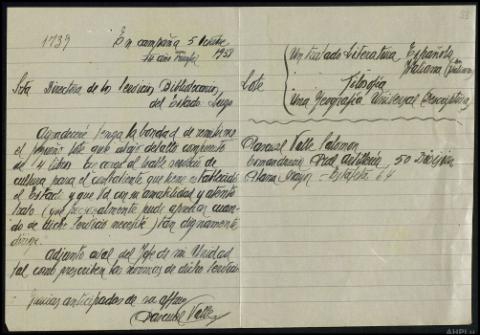 1739
En campaña 5 Octubre
1938
III año Triunfal
Srta Directora de los Servicios Bibliotecarios
del Estado Lugo
Agradeceré tenga la bondad de remitirme
el lote que abajo detallo compuesto
de 4 libros
cultura para el combatiente que tiene establecido
el Estado y que Vd con su amabilidad y atento
trato (que personalmente pude apreciar cuan-
do de dicho Servicio necesité) tan dignamente
dirige.
Adjunto aval del Jefe de mi Unidad
tal como prescriben las normas de dicho Servicio
Gracias anticipadas de su affmo
Valle
Lote
Un tratado Literatura Española
Italiana
Filosofía
Una Geografía Universal Descriptiva
Valle
Comandancia Pral Artillería, 50 División
Plana Mayor - Estafeta 64
AHPL